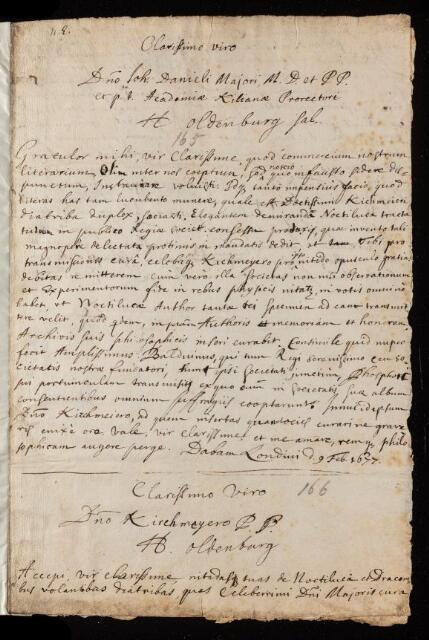 Clarissimo viro
Dno Joh. Danieli Majori M. D. et P. P.
et p. t. Academiæ Kilianæ Prorectori
H. Oldenburg Sal.
165
Gratulor mihi, vir Clarissime, quod commercium nostrum
literarium, olim inter nos cœptum, sed nescio quo infausto sidere dis-
punctum, Instaurare voluisti. Idque tanto impensius facio, quod
literas has tam luculento munere, quale est Doctissimi Kirchmeieri
diatriba duplex, sociasti. Elegantem de miranda Noctiluca tracta
tulum in publico Regiæ societ. consessu produxi, quæ invento tali
magnopere delectata protinus in mandatis dedit, ut tam Tibi pro
transmissionis curâ, celebriq Kirchmeyero pro opusculo gratias
debitas remitterem cum vero illa Societas non nisi observationum
et Experimentorum fide in rebus physicis nitatur, in votis omnino
habet, ut Noctilucæ Author tantæ rei specimen ad eam transmit
tere velit, quod idem, in suam Authoris memoriam et honorem
Archivis suis philosophicis inferri curabit. Consimile quid nuper
fecit Amplissimus Balduinus, qui tum Regi serenissimo ceu so-
cietatis nostræ fundatori, tum ipsi Societati junctim, Phosphori
sui portiunculam transmisit, ex quo eum in Societatis suæ album
consentientibus omnium suffragiis cooptarunt. Simul id ipsum
Dno Kirchmeiero, ad quem insertas quantocius curari ne grave
ris enixe oro. Vale, vir Clarissime, et me amare, remque philo
sophicam augere perge. Dabam Londini d. 9 Feb. 1677.
Clarissimo Viro 166
Dno Kirchmeyero P. P.
H. Oldenburg
Accepi, vir clarissime, nitidas tuas de Noctilucâ et Draconi
bus volantibus diatribas, quas Celeberrimi Dni Majoris cura